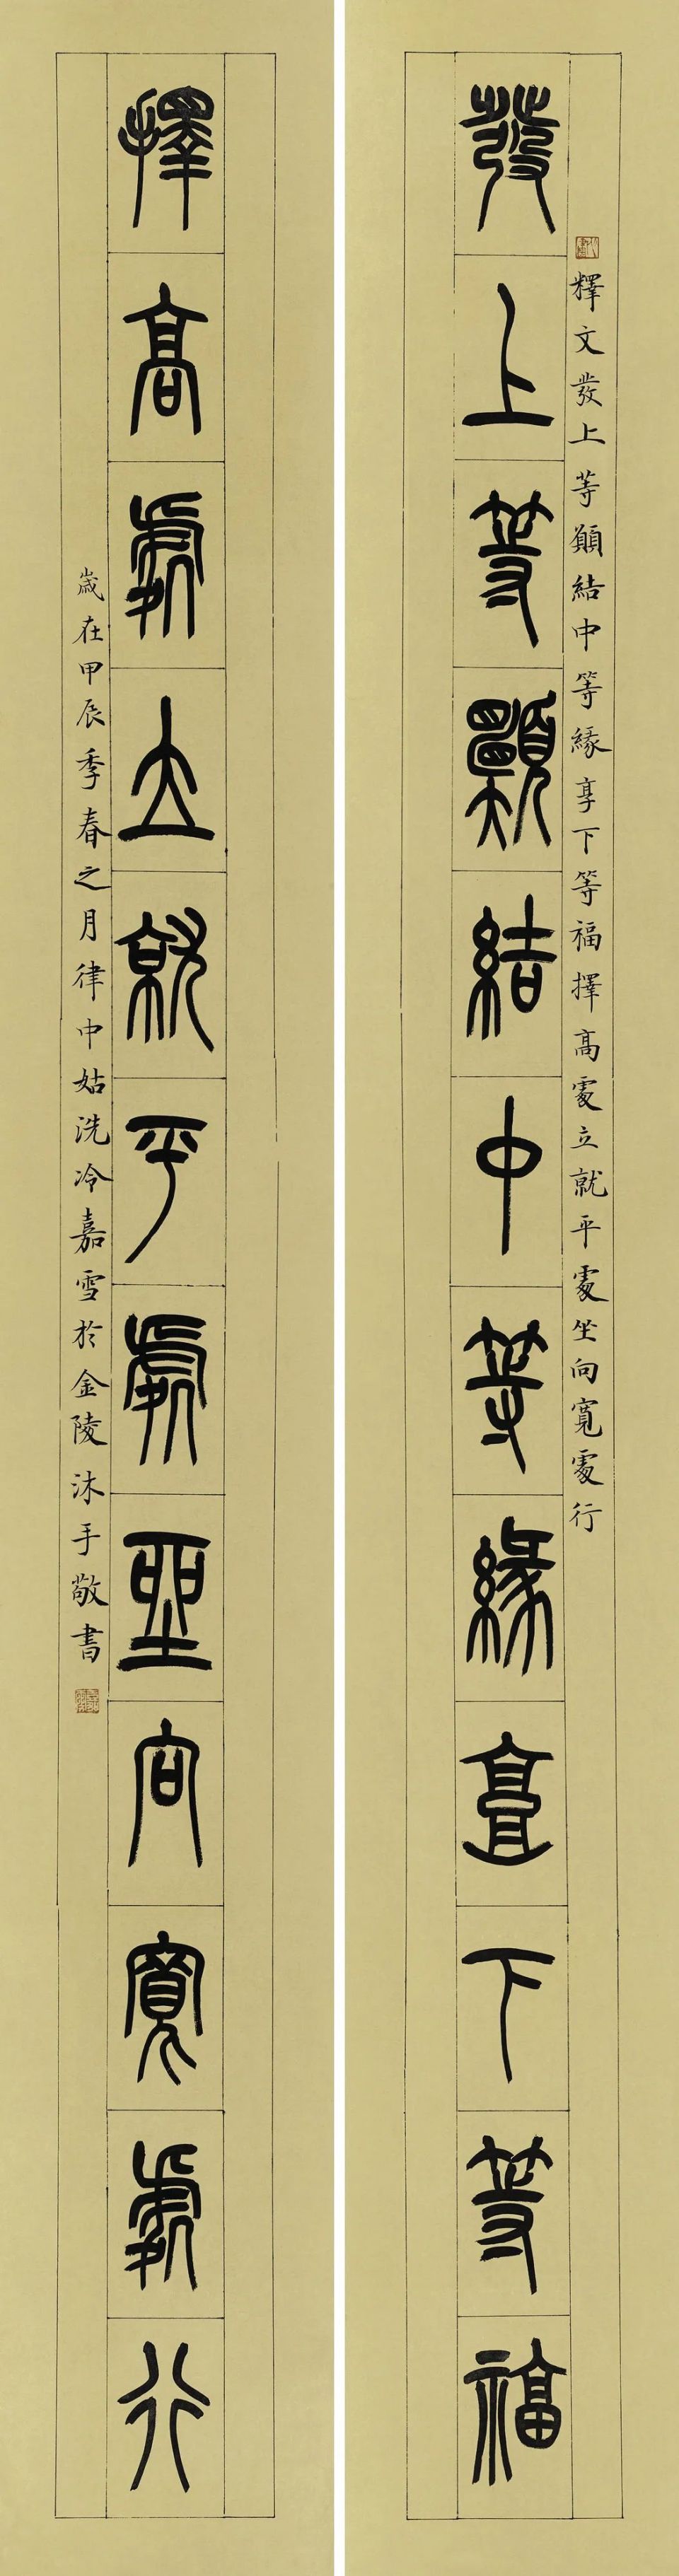 發上等願結中等緣享下等福
釋文發上等願結中等緣享下等福擇高處立就平處坐向寬處行
擇高處立就平處坐向寬處行
歲在甲辰季春之月律中姑洗冷嘉雪於金陵沐手敬書